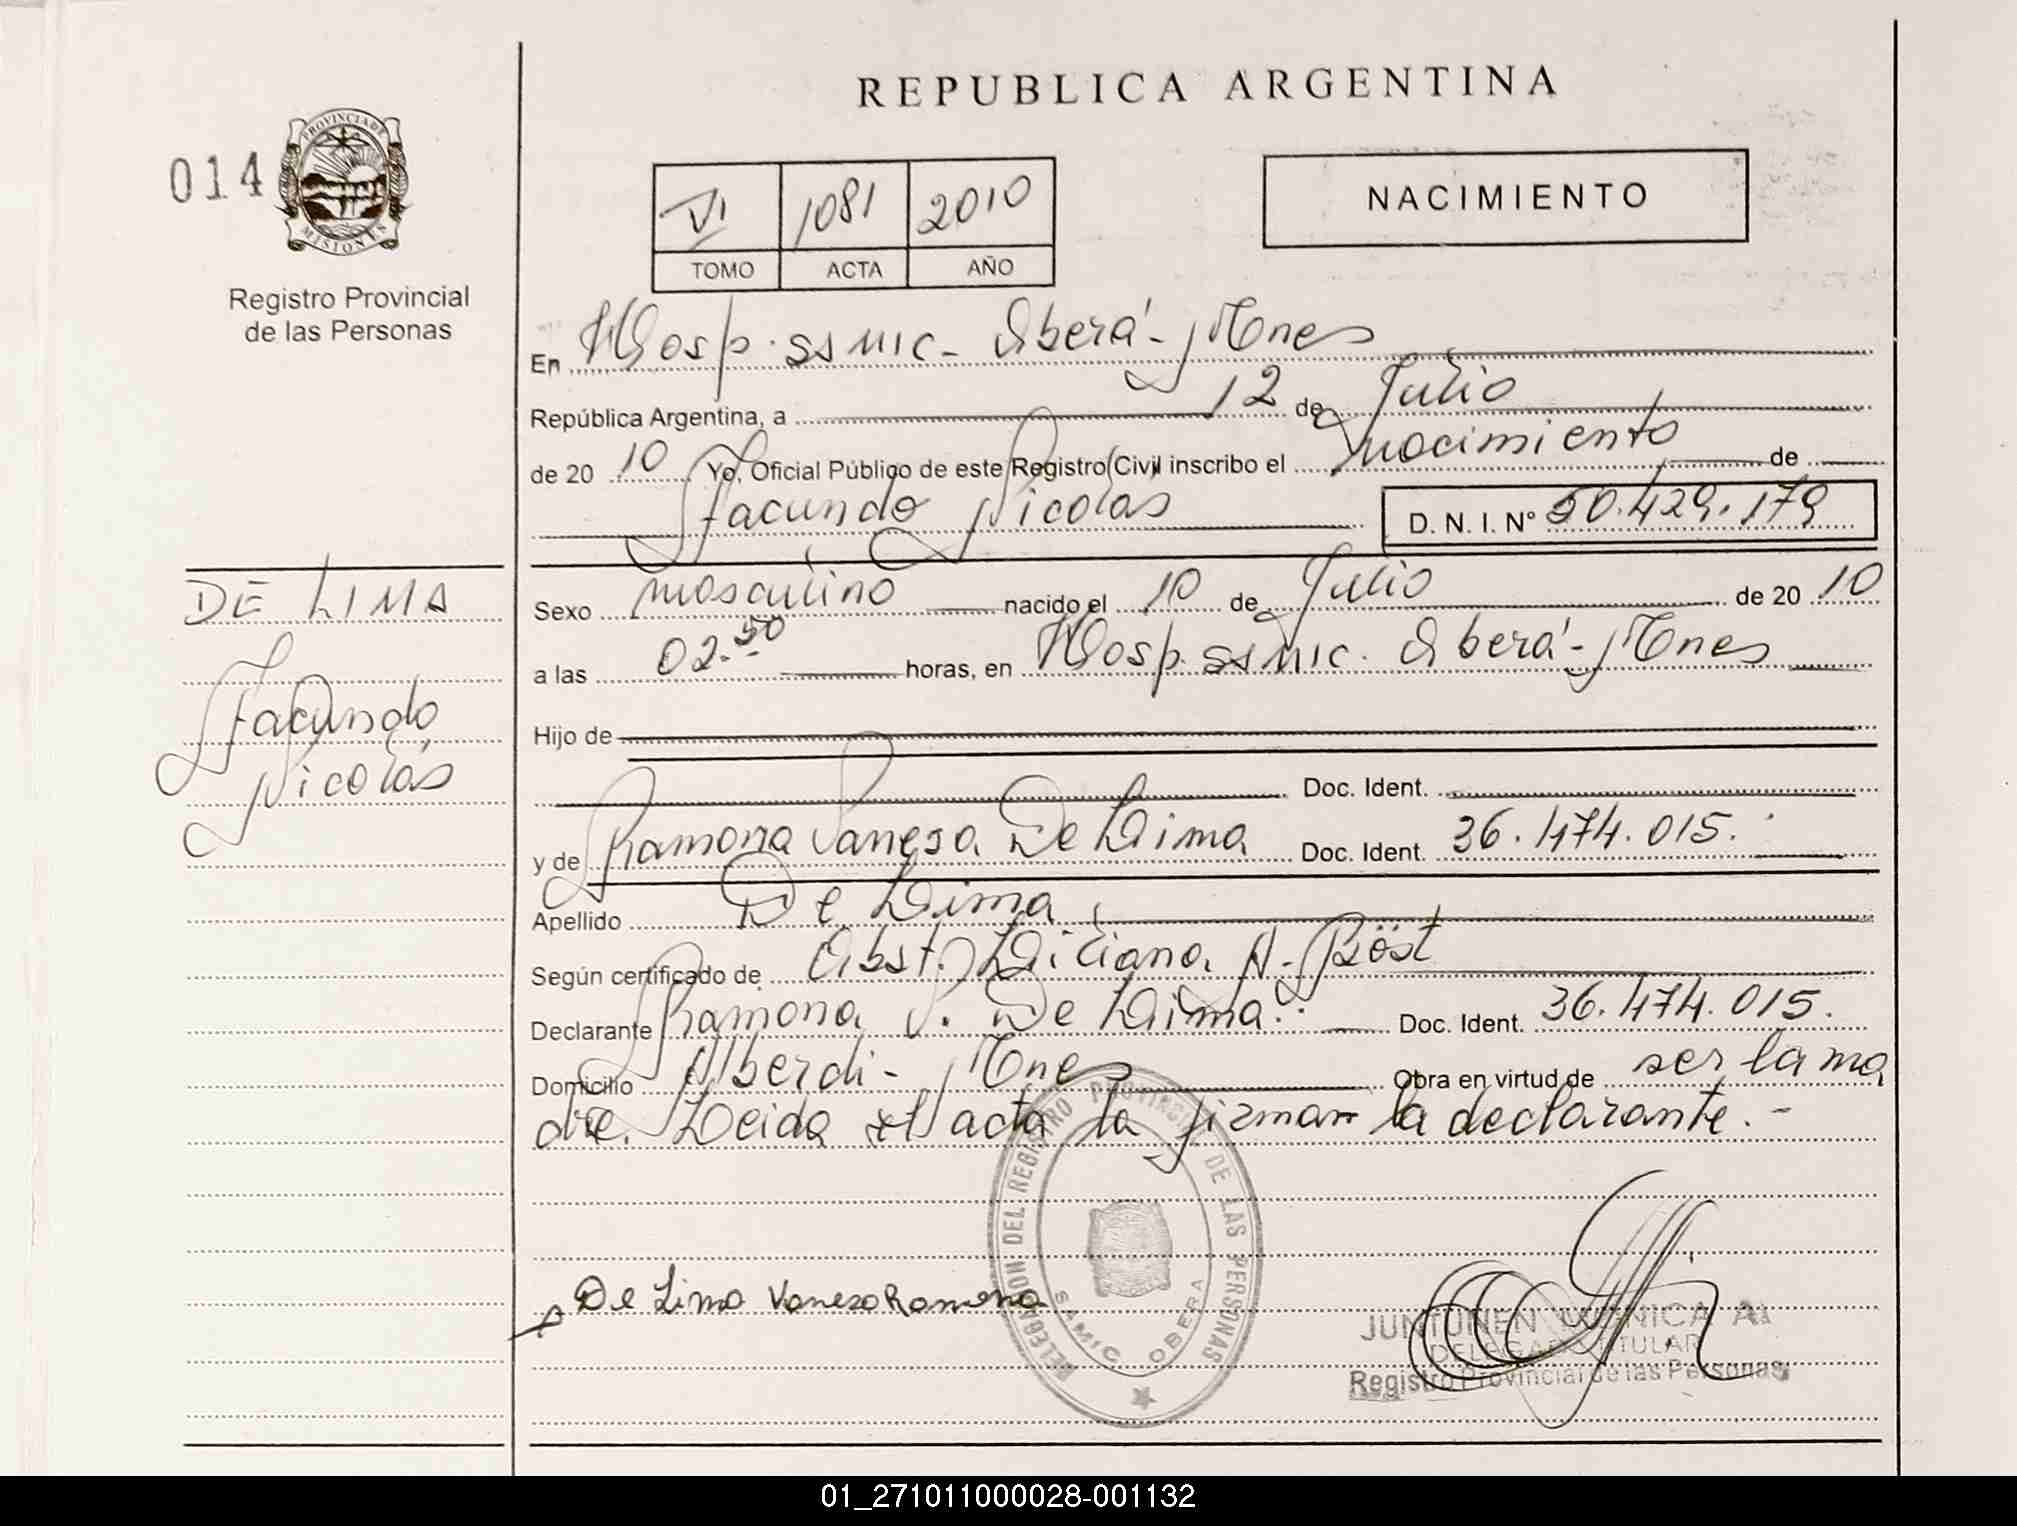 REPUBLICA ARGENTINA
014
PROVINCIA DE
MISIONES
Registro Provincial
de las Personas
VI 1081 2010
TOMO ACTA AÑO
NACIMIENTO
En Hosp. SAMIC - Oberá - Mnes
República Argentina, a 12 de Julio
de 2010 Yo, Oficial Público de este Registro Civil inscribo el nacimiento de
Facundo Nicolás D. N. I. Nº 50.429.179
DE LIMA
Facundo
Nicolás
Sexo masculino nacido el 10 de Julio de 2010
a las 02.50 horas, en Hosp. SAMIC. Oberá - Mnes
Hijo de
Doc. Ident.
y de Ramona Vanesa De Lima Doc. Ident. 36.474.015.
Apellido De Lima
Según certificado de Obst. Liliana A. Böst
Declarante Ramona V. De Lima Doc. Ident. 36.474.015.
Domicilio Alberdi - Mnes Obra en virtud de ser la ma
dre. Leida el acta la firman la declarante. -
De Lima Vanesa Ramona
DELEGACION DEL REGISTRO PROVINCIAL DE LAS PERSONAS
SAMIC OBERA
JUNTUNEN MONICA A.
DELEGADO TITULAR
Registro Provincial de las Personas
01_271011000028-001132